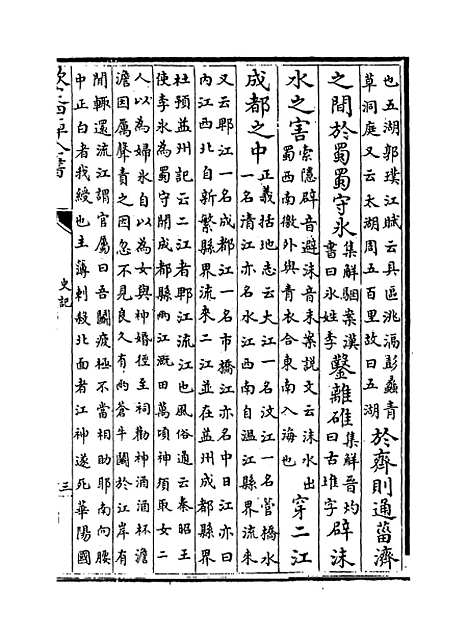 也五湖郭璞江賦云具區洮滆彭蠡青
草洞庭又云太湖周五百里故曰五湖
於齊則通菑濟
之間於蜀蜀守氷
集解駰案漢
書曰氷姓李
鑿離碓
集解晉灼
曰古堆字
辟沫
水之害
索隱辟音避沫音末案説文云沫水出
蜀西南徼外與青衣合東南入海也
穿二江
成都之中
正義括地志云大江一名汶江一名管橋水
一名清江亦名水江西南自溫江縣界流來
又云郫江一名成都江一名市橋江亦名中日江亦曰
內江西北自新繁縣界流來二江並在益州成都縣界
杜預益州記云二江者郫江流江也風俗通云秦昭王
使李氷為蜀守開成都縣兩江溉田萬頃神須取女二
人以為婦氷自以為女與神婚徑至祠勸神酒酒杯澹
澹因厲聲責之因忽不見良久有兩蒼牛鬬於江岸有
閒輒還流江謂官屬曰吾鬬疲極不當相助耶南向腰
中正白者我綬也主簿刺殺北面者江神遂死華陽國
欽定四庫全書
史記
三